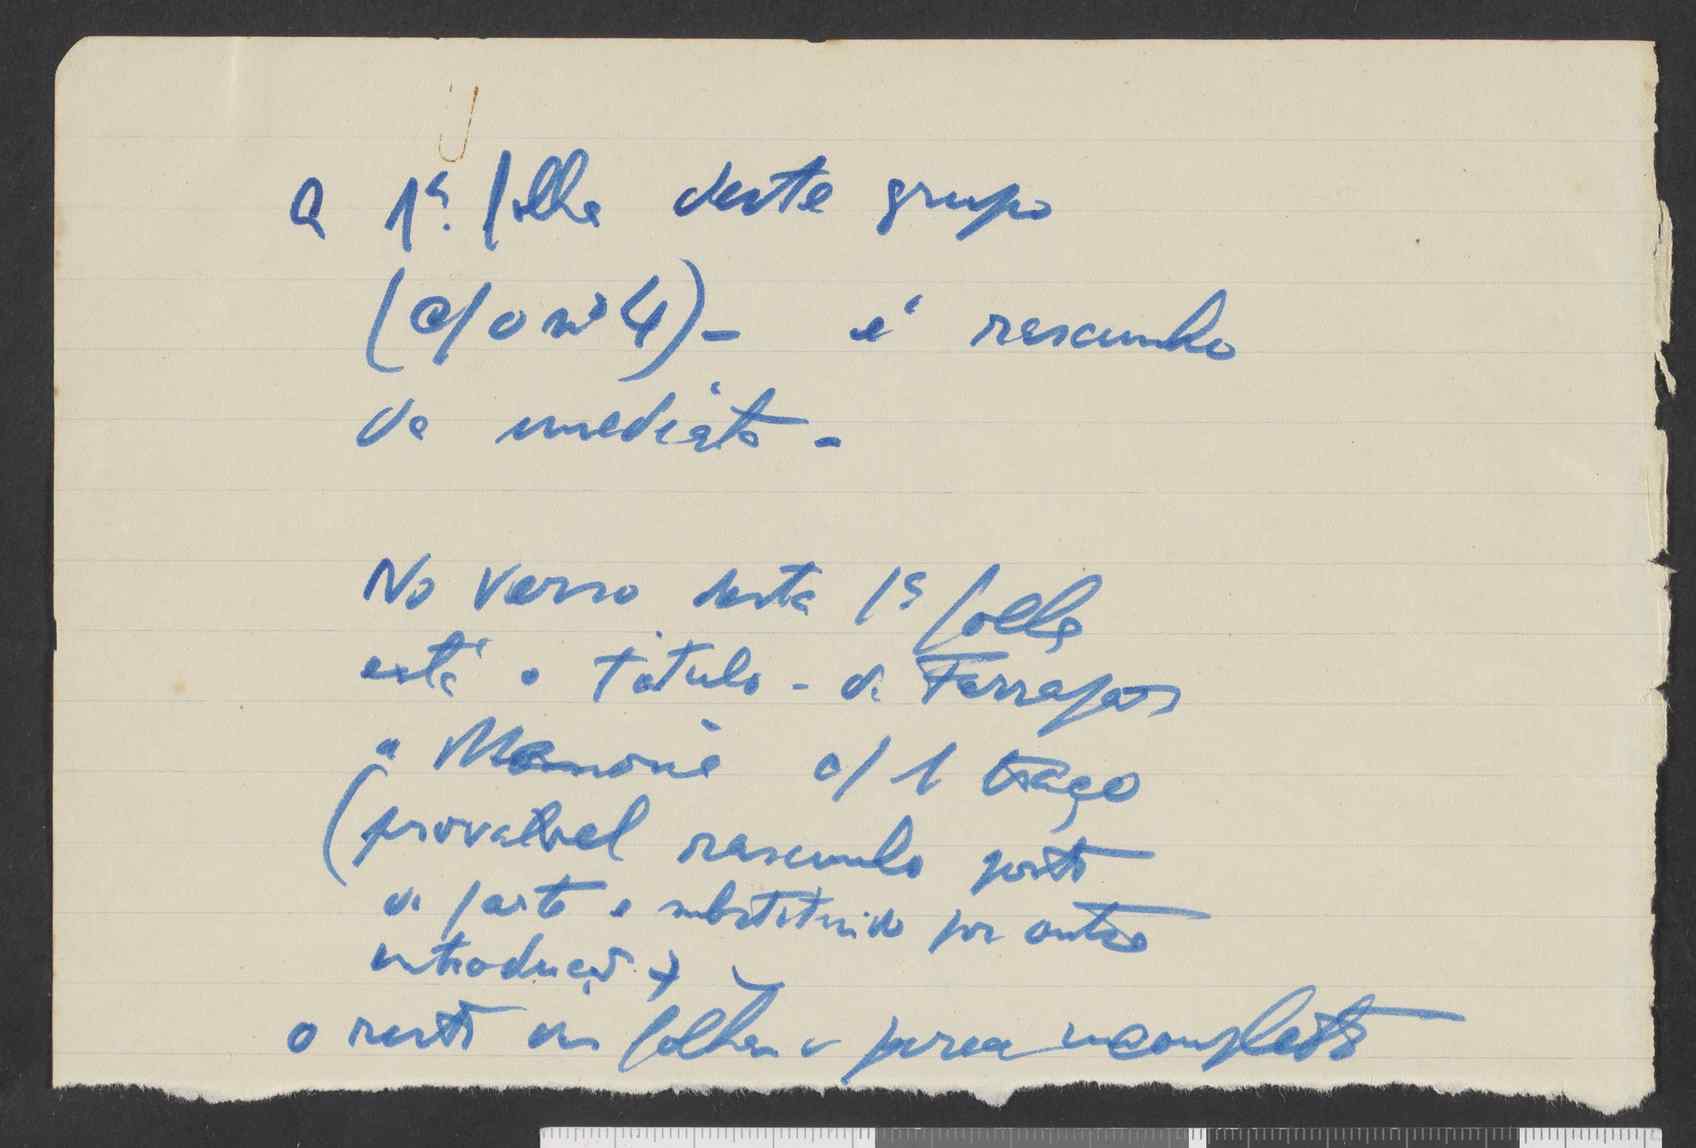 a 1ª. folha deste grupo
(c/ o nº 4) - é rascunho
da imediata -
No verso desta 1ª folha
está o título - de Farrapos
a Memória c/ 1 traço
(provável rascunho posto
de parte e substituido por outra
introdução)
o resto em folhas e parece incompleto